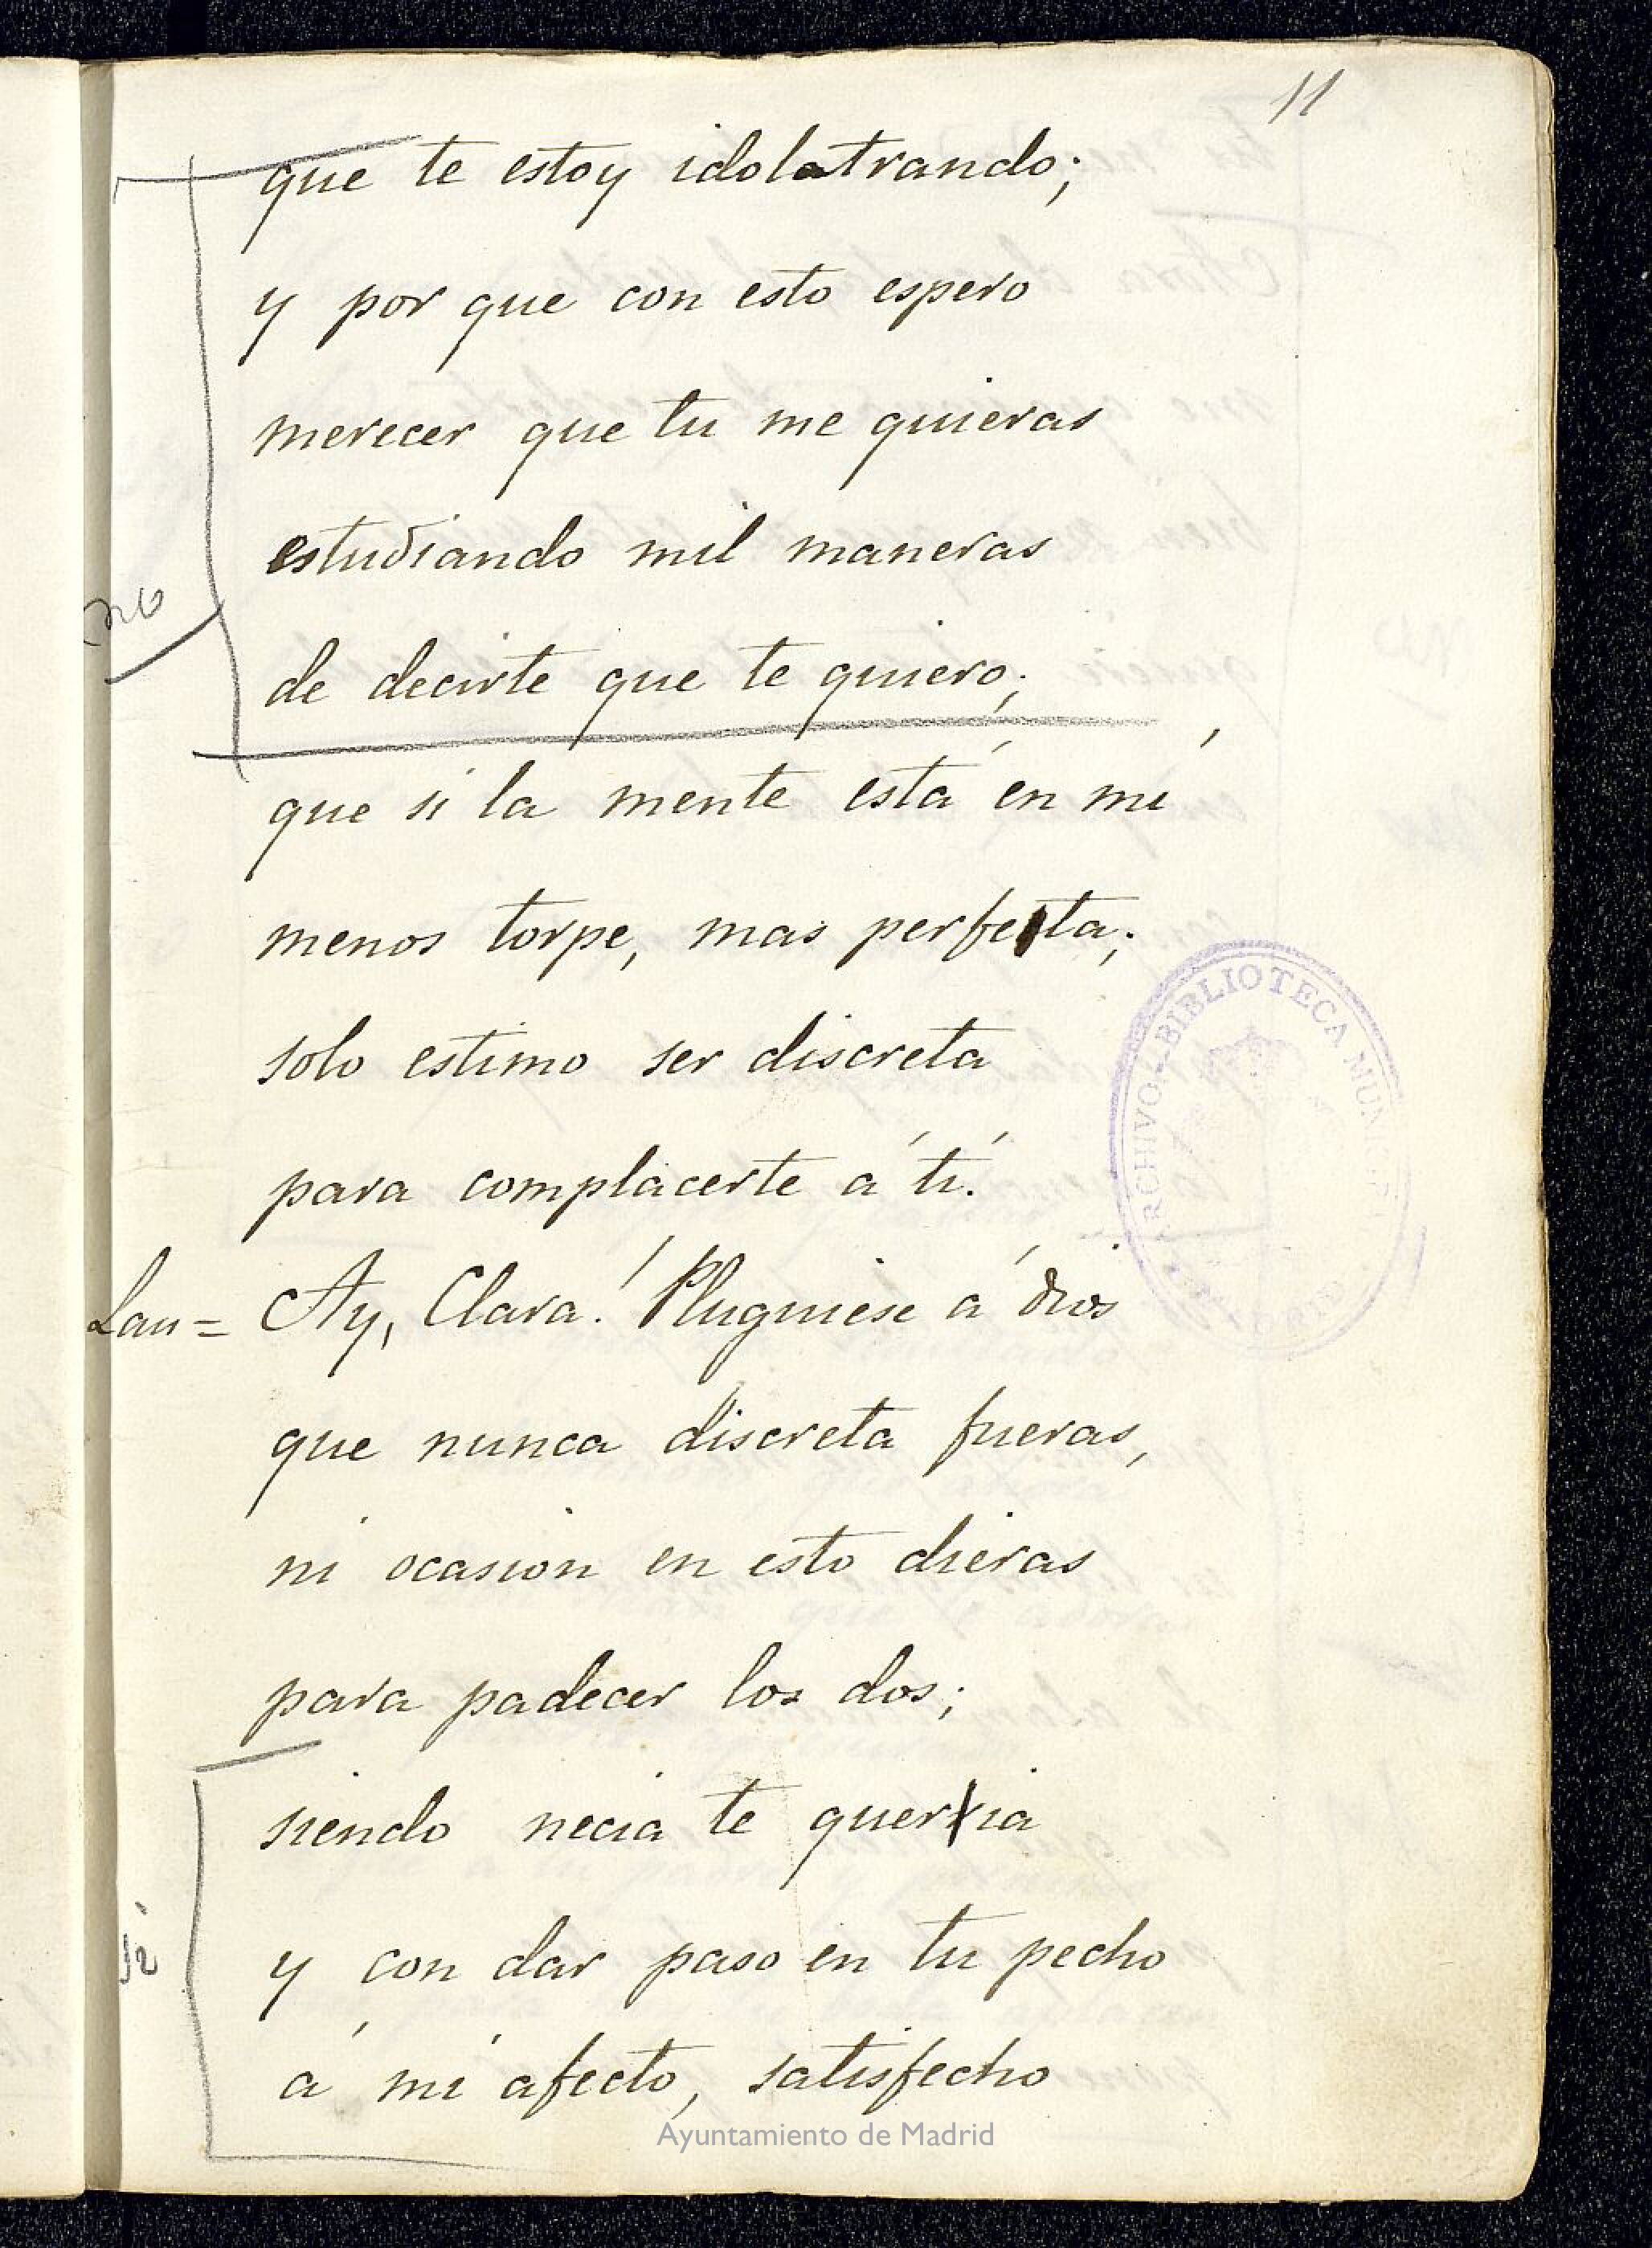 11
que te estoy idolatrando;
y por que con esto espero
merecer que tu me quieras
estudiando mil maneras
no
de decirte que te quiero;
que si la mente está en mi
menos torpe, mas perfeta;
solo estimo ser discreta
para complacerte á tí.
Lau= Ay, Clara! Pluguiese á dios
que nunca discreta fueras,
ni ocasion en esto dieras
para padecer los dos;
siendo necia te querria
y con dar paso en tu pecho
si
á mi afecto, satisfecho
ARCHIVO-BIBLIOTECA MUNICIPAL
Ayuntamiento de Madrid